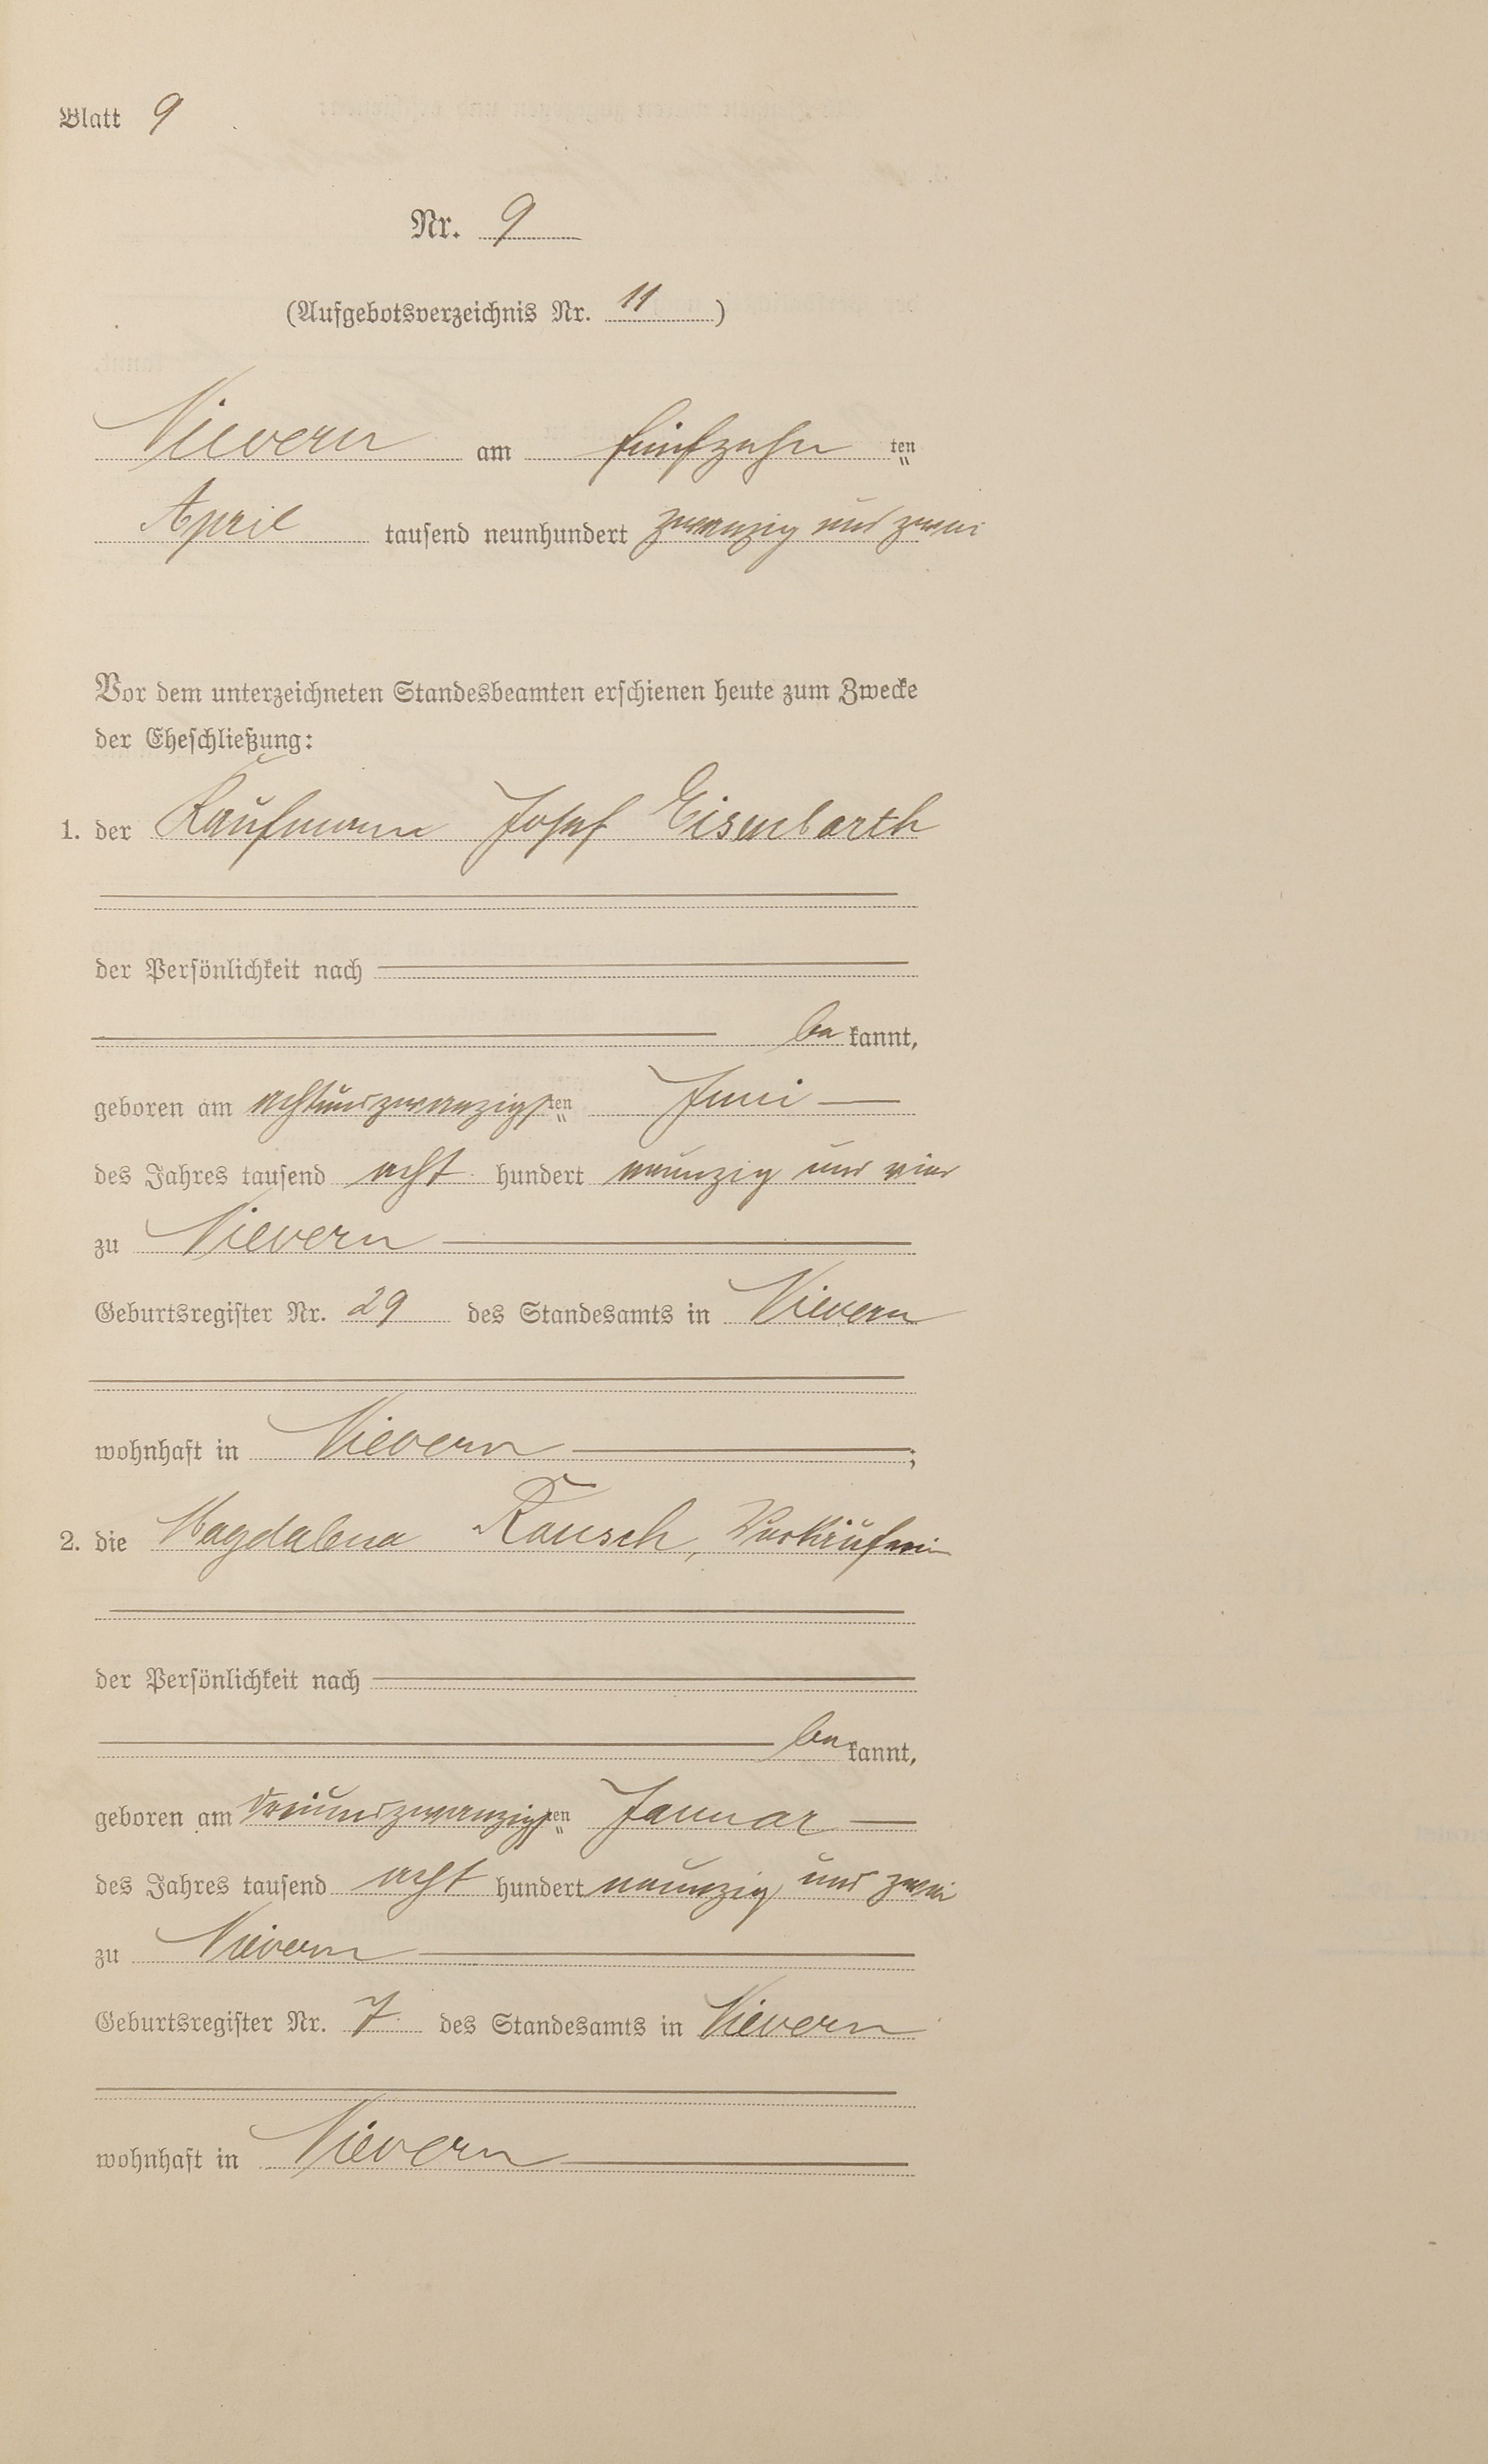 Blatt 9
Nr. 9
(Aufgebotsverzeichnis Nr. 11)
Nievern am fünfzehn ten
April tausend neunhundert zwanzig und zwei
Vor dem unterzeichneten Standesbeamten erschienen heute zum Zwecke
der Eheschließung:
1. der Kaufmann Josef Eisenbarth
der Persönlichkeit nach
be kannt,
geboren am achtundzwanzigsten Juni
des Jahres tausend acht hundert neunzig und vier
zu Nievern
Geburtsregister Nr. 29 des Standesamts in Nievern
wohnhaft in Nievern ;
2. die Magdalena Rausch, Verkäuferin
der Persönlichkeit nach
be kannt,
geboren am dreiundzwanzigsten Januar
des Jahres tausend acht hundert neunzig und zwei
zu Nievern
Geburtsregister Nr. 7 des Standesamts in Nievern
wohnhaft in Nievern